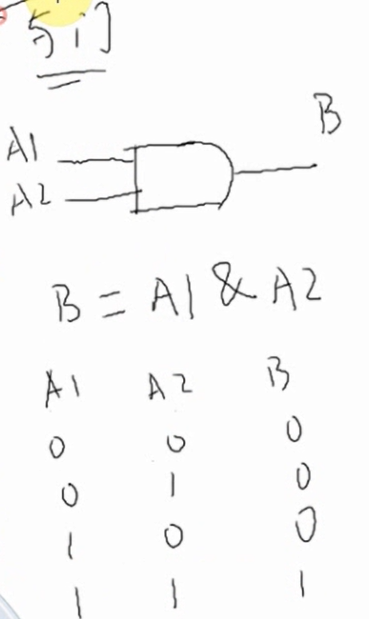 A1
A2
B
B = A1 & A2
A1 A2 B
0 0 0
0 1 0
1 0 0
1 1 1